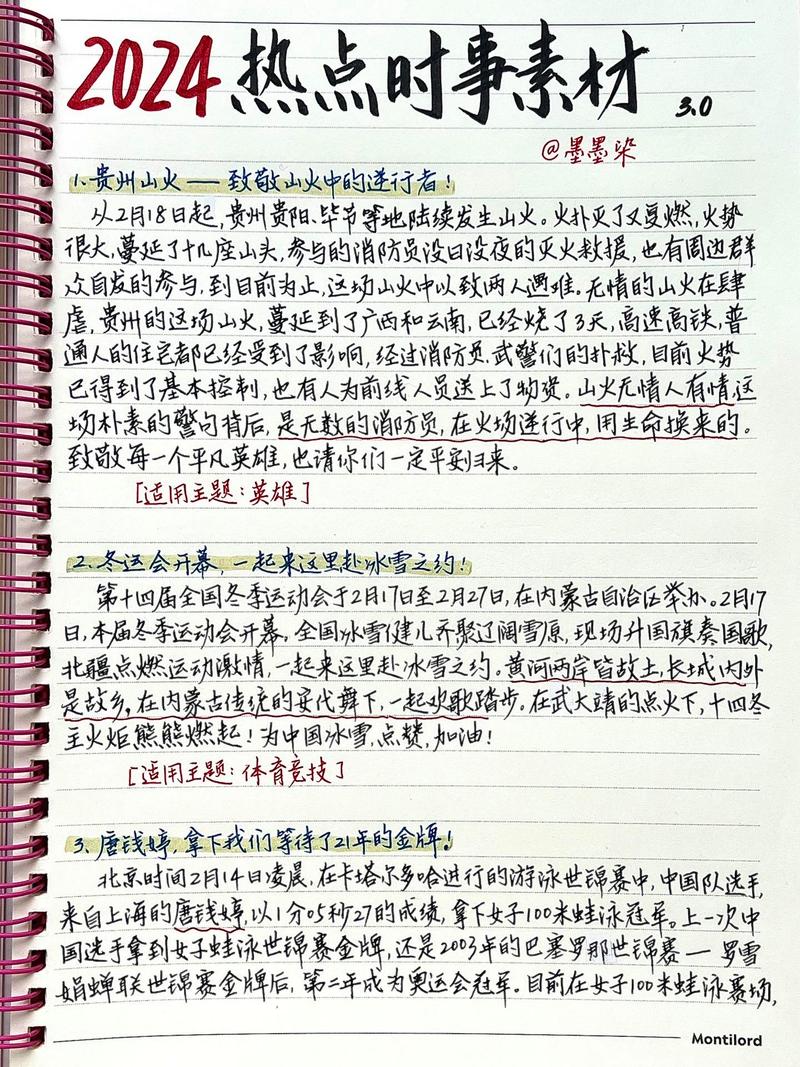 2024热点时事素材 3.0
@墨墨染
1.贵州山火——致敬山火中的逆行者！
从2月18日起，贵州贵阳、毕节等地陆续发生山火。火扑灭了又复燃，火势
很大，蔓延了十几座山头，参与的消防员没日没夜的灭火救援，也有周边群
众自发的参与，到目前为止，这场山火中以致两人遇难。无情的山火在肆
虐，贵州的这场山火，蔓延到了广西和云南，已经烧了3天，高速高铁，普
通人的住宅都已经受到了影响，经过消防员、武警们的扑救，目前火势
已得到了基本控制，也有人为前线人员送上了物资。山火无情人有情，这
场朴素的警句背后，是无数的消防员，在火场逆行中，用生命换来的。
致敬每一个平凡英雄，也请你们一定平安归来。
[适用主题：英雄]
2.冬运会开幕，一起来这里赴冰雪之约！
第十四届全国冬季运动会于2月17日至2月27日，在内蒙古自治区举办。2月17
日，本届冬季运动会开幕，全国冰雪健儿齐聚辽阔雪原，现场升国旗奏国歌，
北疆点燃运动激情，一起来这里赴冰雪之约。黄河两岸皆故土，长城内外
是故乡，在内蒙古传统的安代舞下，一起欢歌踏步。在武大靖的点火下，十四冬
主火炬熊熊燃起！为中国冰雪，点赞，加油！
[适用主题：体育竞技]
3.唐钱婷，拿下我们等待了21年的金牌！
北京时间2月14日凌晨，在卡塔尔多哈进行的游泳世锦赛中，中国队选手，
来自上海的唐钱婷，以1分05秒27的成绩，拿下女子100米蛙泳冠军。上一次中
国选手拿到女子蛙泳世锦赛金牌，还是2003年的巴塞罗那世锦赛—罗雪
娟蝉联世锦赛金牌后，第二年成为奥运会冠军。目前在女子100米蛙泳赛场，
Montilord